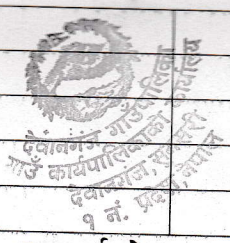 देवानगञ्ज गाउँपालिका
गाउँ कार्यपालिकाको कार्यालय
देवानगञ्ज, सुनसरी
१ नं. प्रदेश, नेपाल